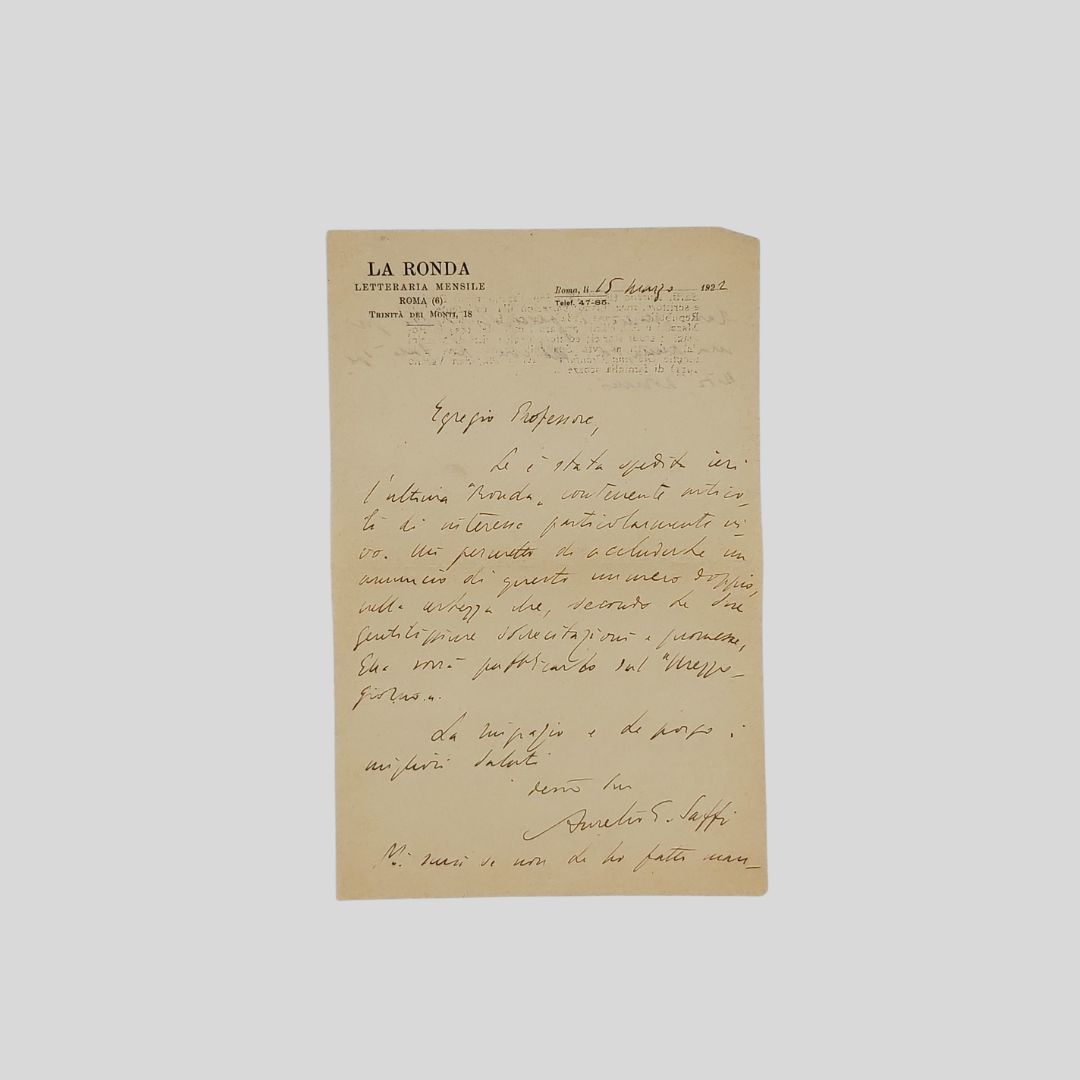 LA RONDA
LETTERARIA MENSILE
ROMA (6)
TRINITÀ DEI MONTI, 18
Roma, li 15 marzo 1922
Telef. 47-86.
Egregio Professore,
Le è stata spedita ieri
l'ultima "Ronda" contenente artico-
li di interesse particolarmente vi
vo. Mi permetto di accluderLe un
annuncio di questo numero doppio,
nella certezza che, secondo Le Sue
gentilissime sollecitazioni e promesse,
Ella vorrà pubblicarlo sul "Mezzo-
giorno".
La ringrazio e Le porgo i
migliori saluti
devmo Suo
Aurelio E. Saffi
Mi scusi se non Le ho fatto man-